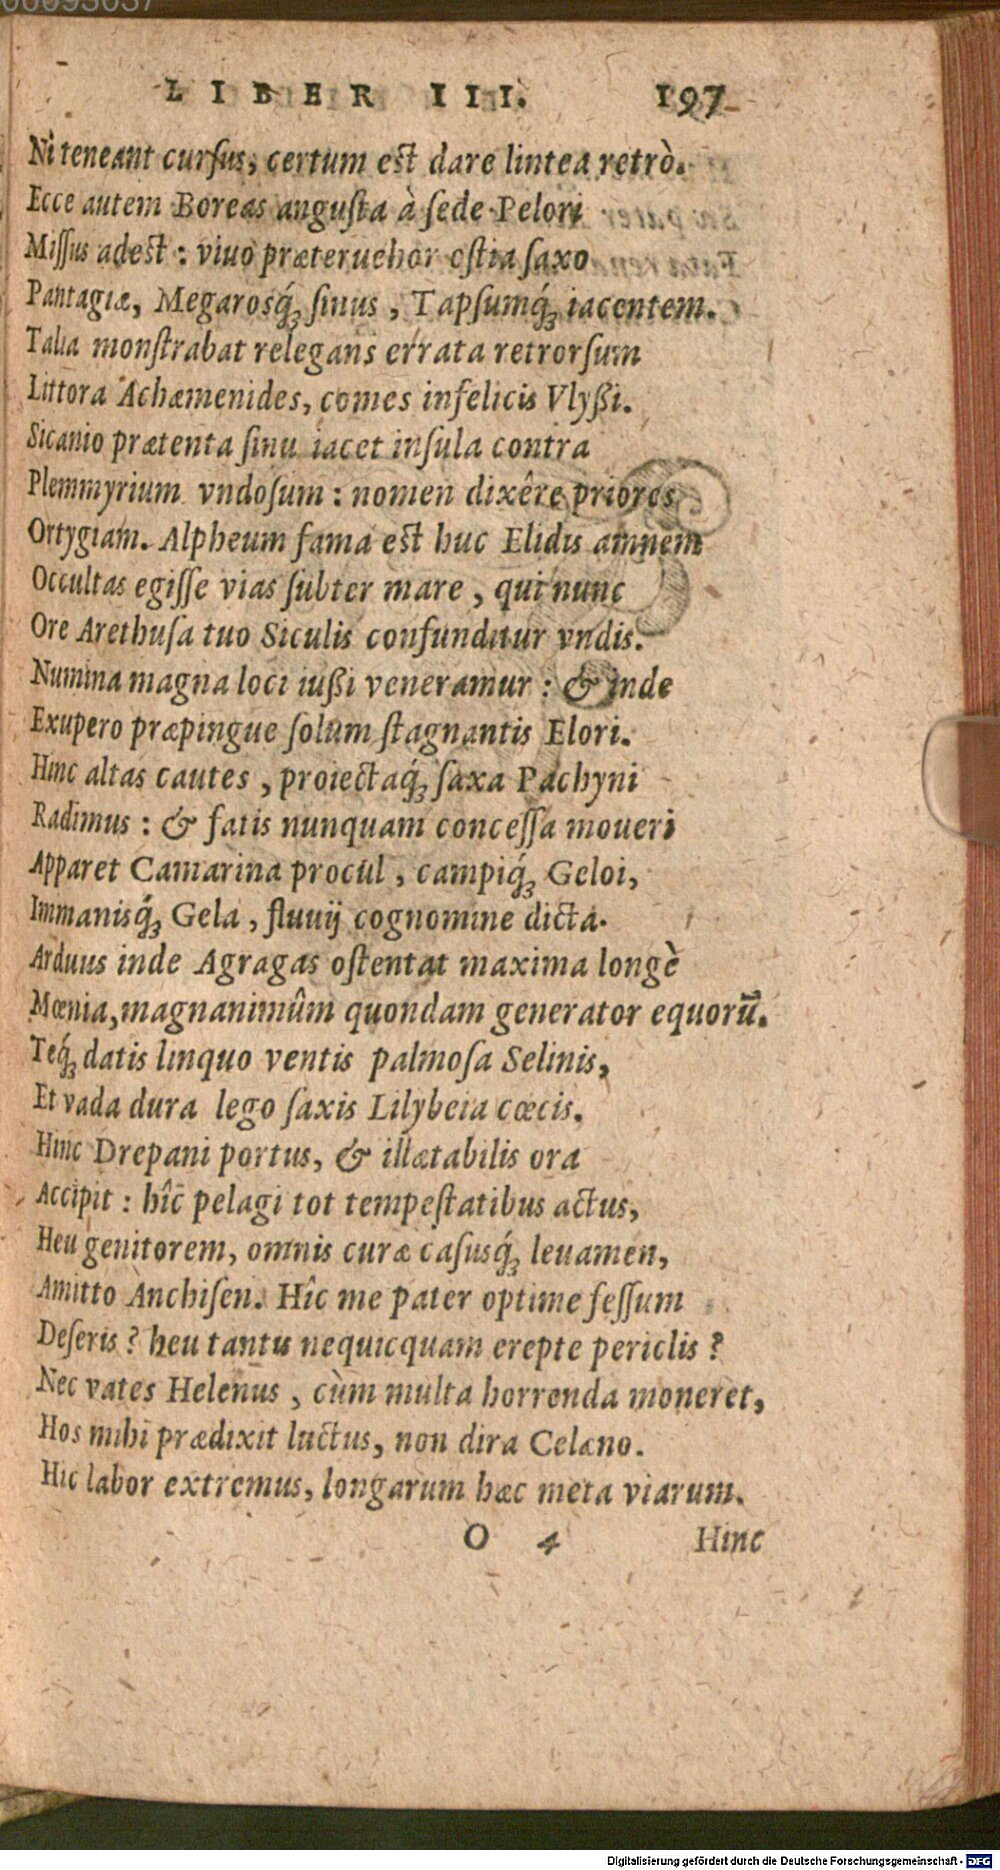 LIBER III. 197
Ni teneant cursus, certum est dare lintea retrò.
Ecce autem Boreas angusta à sede Pelori
Missus adest: viuo præteruehor ostia saxo
Pantagiæ, Megarosq́; sinus, Tapsumq́; iacentem.
Talia monstrabat relegans errata retrorsum
Littora Achæmenides, comes infelicis Vlyßi.
Sicanio prætenta sinu iacet insula contra
Plemmyrium vndosum: nomen dixêre priores
Ortygiam. Alpheum fama est huc Elidis amnem
Occultas egisse vias subter mare, qui nunc
Ore Arethusa tuo Siculis confunditur vndis.
Numina magna loci iußi veneramur: & inde
Exupero præpingue solum stagnantis Elori.
Hinc altas cautes, proiectaq́; saxa Pachyni
Radimus: & fatis nunquam concessa moueri
Apparet Camarina procul, campiq́; Geloi,
Immanisq́; Gela, fluuij cognomine dicta.
Arduus inde Agragas ostentat maxima longè
Mœnia, magnanimûm quondam generator equorū.
Teq́; datis linquo ventis palmosa Selinis,
Et vada dura lego saxis Lilybeia cœcis.
Hinc Drepani portus, & illætabilis ora
Accipit: hîc pelagi tot tempestatibus actus,
Heu genitorem, omnis curæ casusq́; leuamen,
Amitto Anchisen. Hîc me pater optime fessum
Deseris? heu tantis nequicquam erepte periclis?
Nec vates Helenus, cùm multa horrenda moneret,
Hos mihi prædixit luctus, non dira Celæno.
Hic labor extremus, longarum hæc meta viarum.
O 4 Hinc
Digitalisierung gefördert durch die Deutsche Forschungsgemeinschaft - DFG